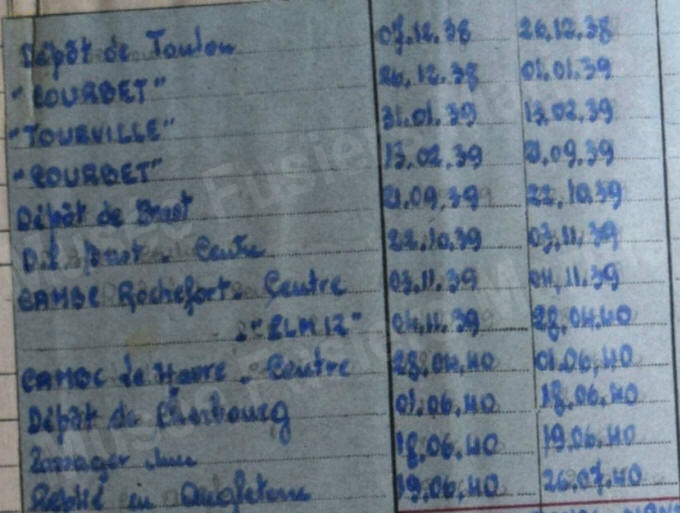 Dépôt de Toulon 07.12.38 26.12.38
"COURBET" 26.12.38 01.01.39
"TOURVILLE" 31.01.39 13.02.39
"COURBET" 13.02.39 21.09.39
Dépôt de Brest 21.09.39 22.10.39
Centre 22.10.39 03.11.39
CAMBC Rochefort. Centre 03.11.39 04.11.39
04.11.39 28.04.40
CAMBC Le Havre. Centre 28.04.40 01.06.40
Dépôt de Cherbourg 01.06.40 18.06.40
Passager 18.06.40 19.06.40
Replié en Angleterre 19.06.40 26.07.40
Musée Fusiliers Marins